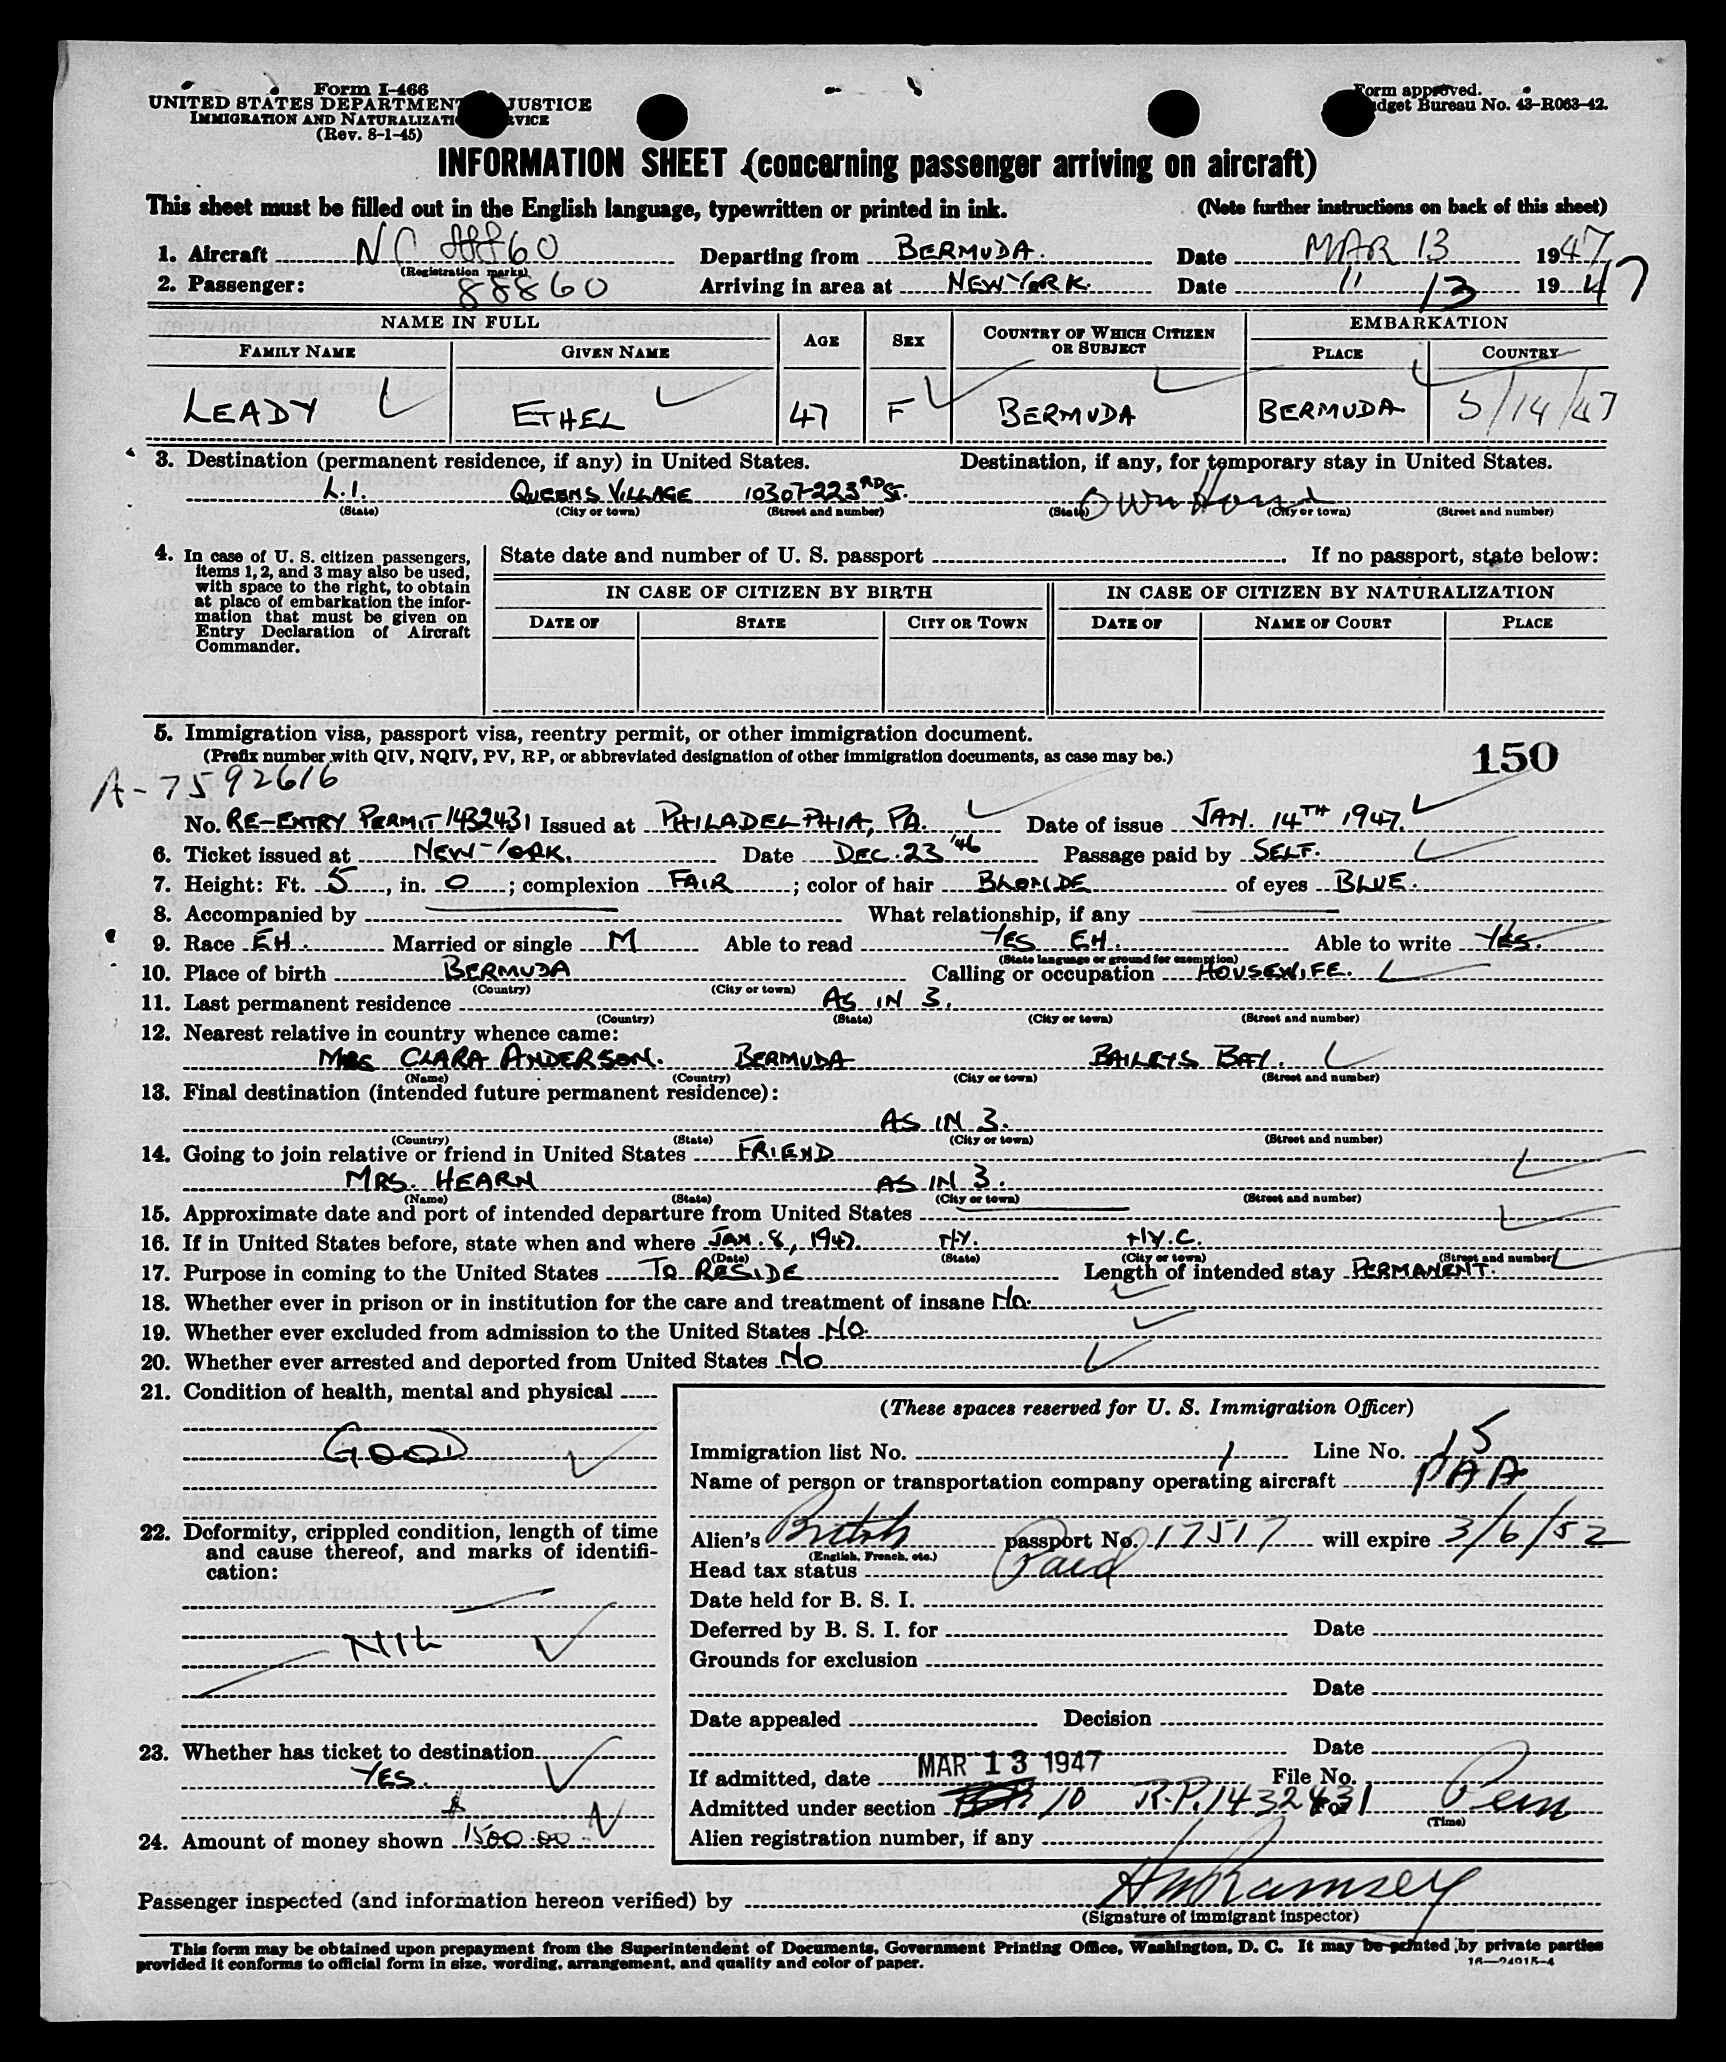 Form I-466
UNITED STATES DEPARTMENT JUSTICE
IMMIGRATION AND NATURALIZATI RVICE
(Rev. 8-1-45)
Form approved.
dget Bureau No. 43-R063-42.
INFORMATION SHEET (concerning passenger arriving on aircraft)
This sheet must be filled out in the English language, typewritten or printed in ink. (Note further instructions on back of this sheet)
1. Aircraft NC 60 Departing from BERMUDA. Date MAR 13 1947
(Registration marks)
2. Passenger: 88860 Arriving in area at NEW YORK. Date 11 13 1947
NAME IN FULL AGE SEX COUNTRY OF WHICH CITIZEN OR SUBJECT EMBARKATION
FAMILY NAME GIVEN NAME PLACE COUNTRY
LEADY ETHEL 47 F BERMUDA BERMUDA 5/14/47
3. Destination (permanent residence, if any) in United States. Destination, if any, for temporary stay in United States.
L.I. QUEENS VILLAGE 10307-223RD ST. Own
(State) (City or town) (Street and number) (State) (City or town) (Street and number)
4. In case of U. S. citizen passengers, items 1, 2, and 3 may also be used, with space to the right, to obtain at place of embarkation the information that must be given on Entry Declaration of Aircraft Commander.
State date and number of U. S. passport . If no passport, state below:
IN CASE OF CITIZEN BY BIRTH IN CASE OF CITIZEN BY NATURALIZATION
DATE OF STATE CITY OR TOWN DATE OF NAME OF COURT PLACE
5. Immigration visa, passport visa, reentry permit, or other immigration document.
(Prefix number with QIV, NQIV, PV, RP, or abbreviated designation of other immigration documents, as case may be.) 150
A-7592616
No. RE-ENTRY PERMIT 1432431 Issued at PHILADELPHIA, PA. Date of issue JAN. 14TH 1947.
6. Ticket issued at NEW-YORK. Date DEC. 23 '46 Passage paid by SELF.
7. Height: Ft. 5, in. 0; complexion FAIR; color of hair BLONDE of eyes BLUE.
8. Accompanied by What relationship, if any
9. Race EH. Married or single M Able to read YES EH. Able to write YES.
(State language or ground for exemption)
10. Place of birth BERMUDA Calling or occupation HOUSEWIFE.
(Country) (City or town)
11. Last permanent residence AS IN 3.
(Country) (State) (City or town) (Street and number)
12. Nearest relative in country whence came:
MRS CLARA ANDERSON. BERMUDA BAILEYS BAY.
(Name) (Country) (City or town) (Street and number)
13. Final destination (intended future permanent residence):
AS IN 3.
(Country) (State) (City or town) (Street and number)
14. Going to join relative or friend in United States FRIEND
MRS. HEARN AS IN 3.
(Name) (State) (City or town) (Street and number)
15. Approximate date and port of intended departure from United States
16. If in United States before, state when and where JAN. 8, 1947. N.Y. N.Y.C.
(Date) (State) (City or town) (Street and number)
17. Purpose in coming to the United States TO RESIDE Length of intended stay PERMANENT.
18. Whether ever in prison or in institution for the care and treatment of insane NO.
19. Whether ever excluded from admission to the United States NO.
20. Whether ever arrested and deported from United States NO
21. Condition of health, mental and physical
GOOD
22. Deformity, crippled condition, length of time and cause thereof, and marks of identification:
NIL
23. Whether has ticket to destination
YES.
24. Amount of money shown $1500.00
(These spaces reserved for U. S. Immigration Officer)
Immigration list No. 1 Line No. 15
Name of person or transportation company operating aircraft PAA
Alien's British passport No. 17517 will expire 3/6/52
(English, French, etc.)
Head tax status Paid
Date held for B. S. I.
Deferred by B. S. I. for Date
Grounds for exclusion
Date
Date appealed Decision
Date
If admitted, date MAR 13 1947 File No.
Admitted under section 10 R.P. 1432431 For Perm
(Time)
Alien registration number, if any
Passenger inspected (and information hereon verified) by Ramsey
(Signature of immigrant inspector)
This form may be obtained upon prepayment from the Superintendent of Documents, Government Printing Office, Washington, D. C. It may be printed by private parties
provided it conforms to official form in size, wording, arrangement, and quality and color of paper.
16—24915-4